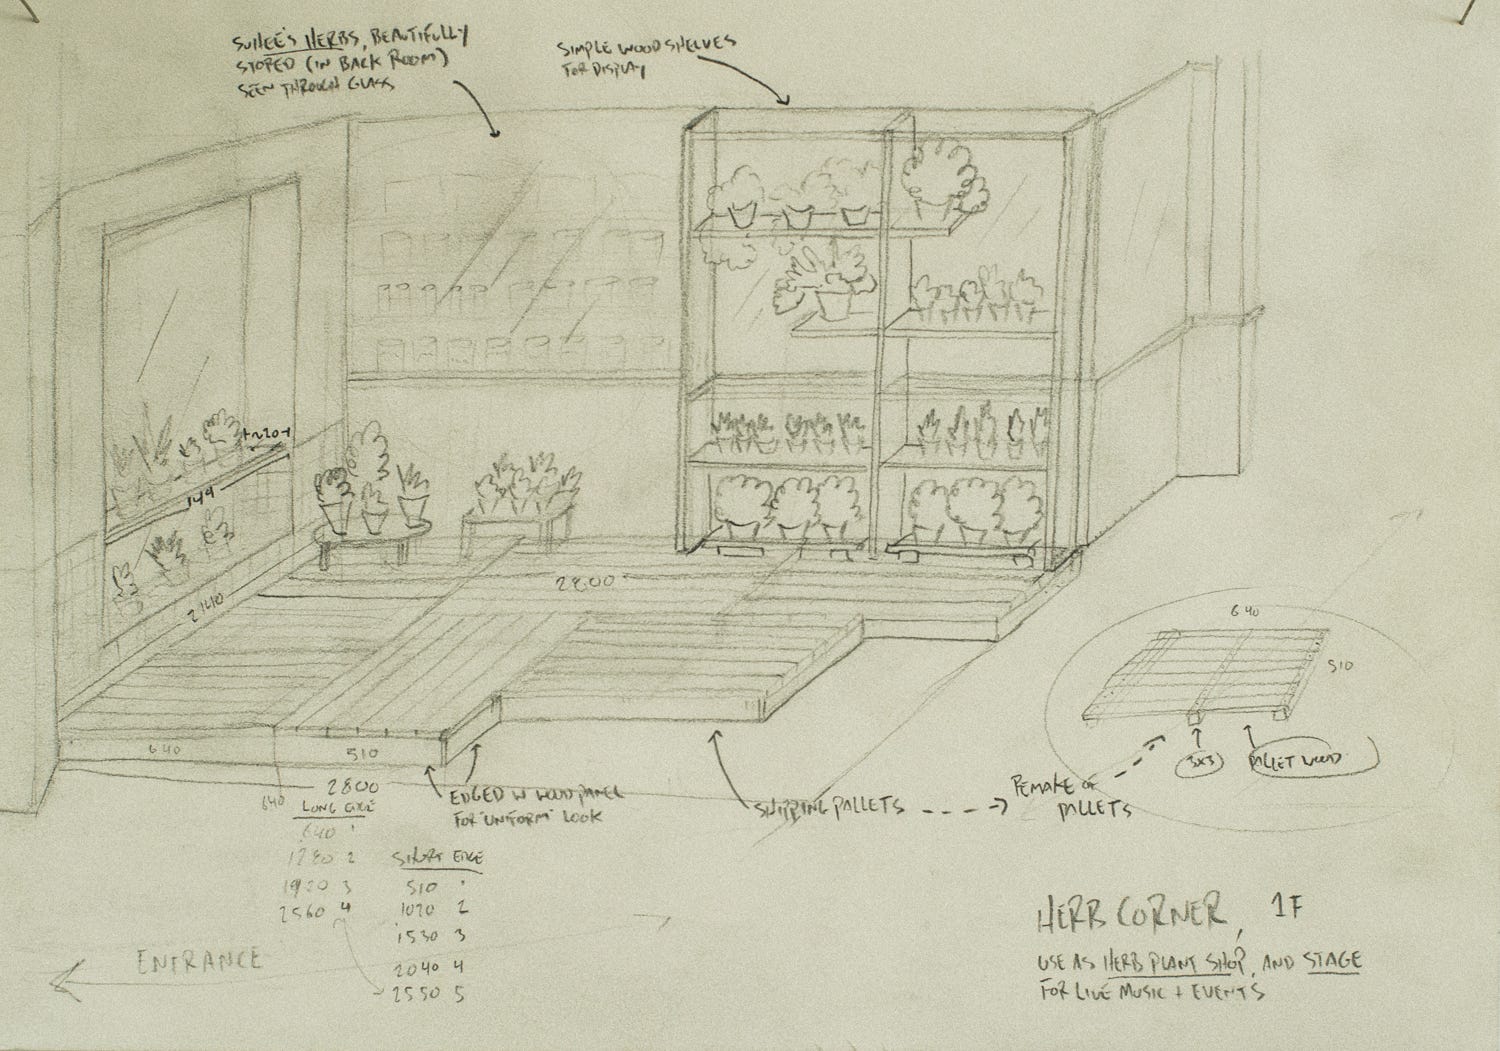 SUHEE'S HERBS, BEAUTIFULLY
STORED (IN BACK ROOM)
SEEN THROUGH GLASS
SIMPLE WOOD SHELVES
FOR DISPLAY
~20
149
2140
2800
640
510
2800
640
LONG EDGE
640 1
1280 2
1920 3
2560 4
SHORT EDGE
510 1
1020 2
1530 3
2040 4
2550 5
EDGED W WOOD PANEL
FOR "UNIFORM" LOOK
SHIPPING PALLETS
REMAKE OF
PALLETS
640
510
3X3
PALLET WOOD
ENTRANCE
HERB CORNER, 1F
USE AS HERB PLANT SHOP, AND STAGE
FOR LIVE MUSIC + EVENTS